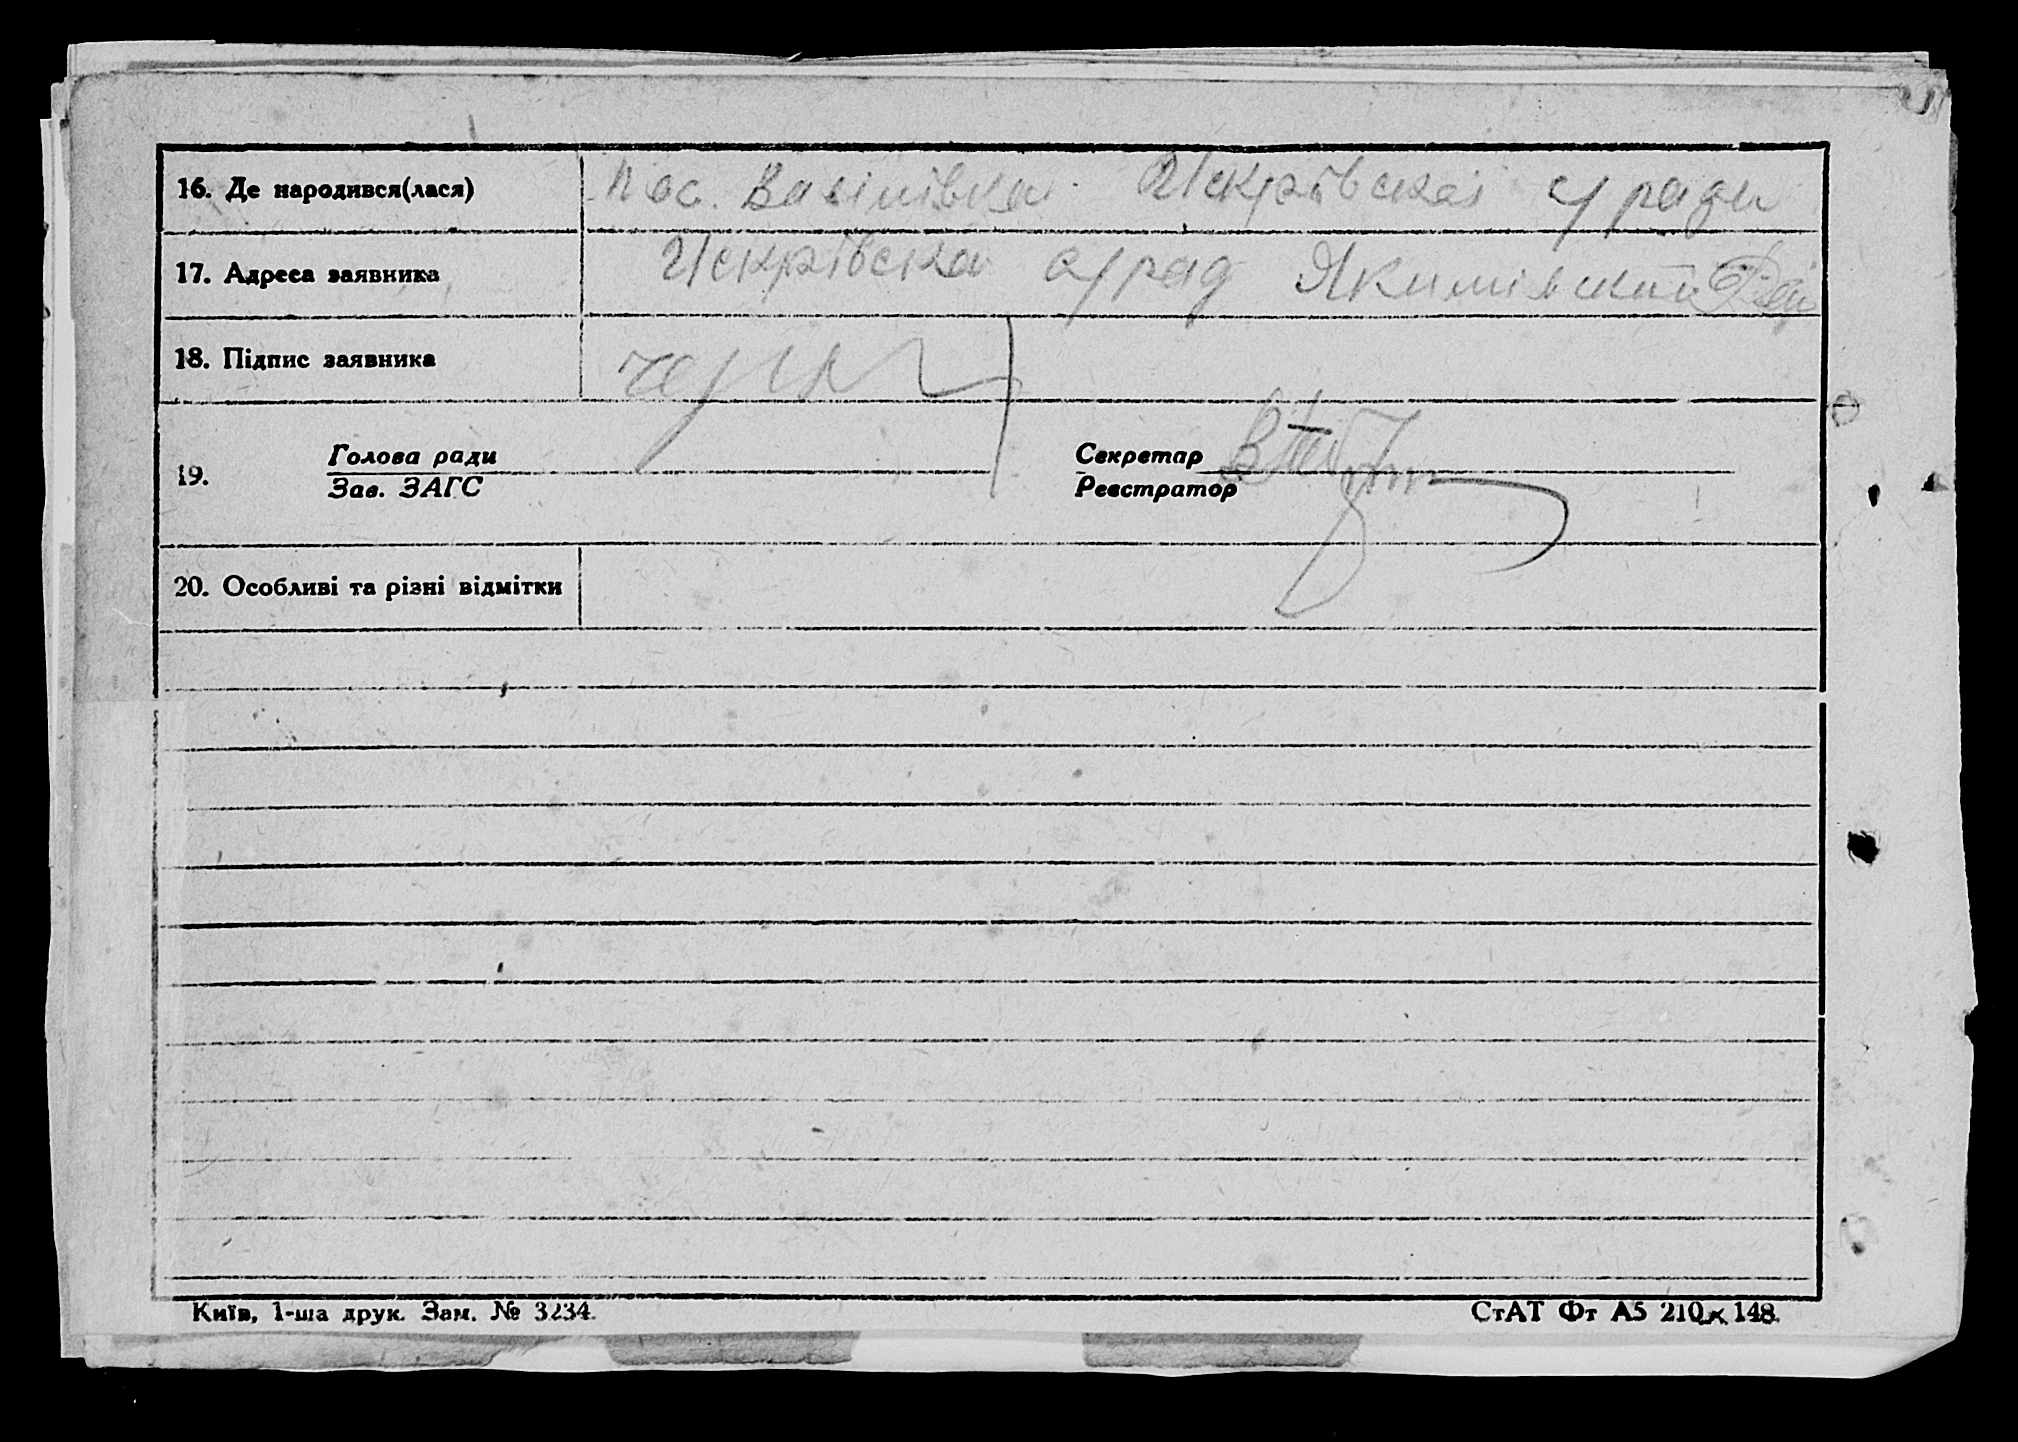 16. Де народився(лася) пос. Вавілівка Искрівскаі с/ради
17. Адреса заявника Искрівска с/рад Якимівский Рай
18. Підпис заявника
19. Голова ради Секретар
Зав. ЗАГС Реєстратор
20. Особливі та різні відмітки
Київ, 1-ша друк. Зам. № 3234. СтАТ Фт А5 210 × 148.